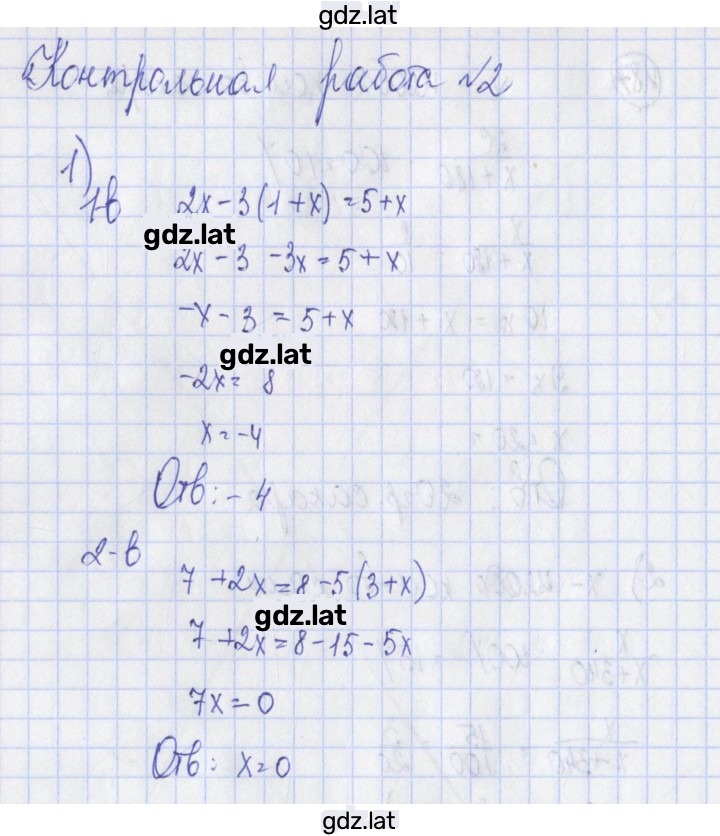 gdz.lat
Контрольная работа №2
1)
1-в 2x-3(1+x)=5+x
gdz.lat
2x-3-3x=5+x
-x-3=5+x
gdz.lat
-2x=8
x=-4
Отв: -4
2-в
7+2x=8-5(3+x)
gdz.lat
7+2x=8-15-5x
7x=0
Отв: x=0
gdz.lat